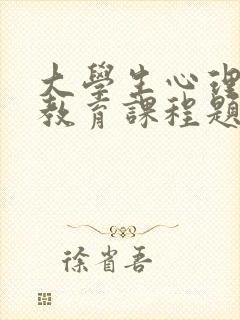 大學生心理
教育課程題
徐省吾